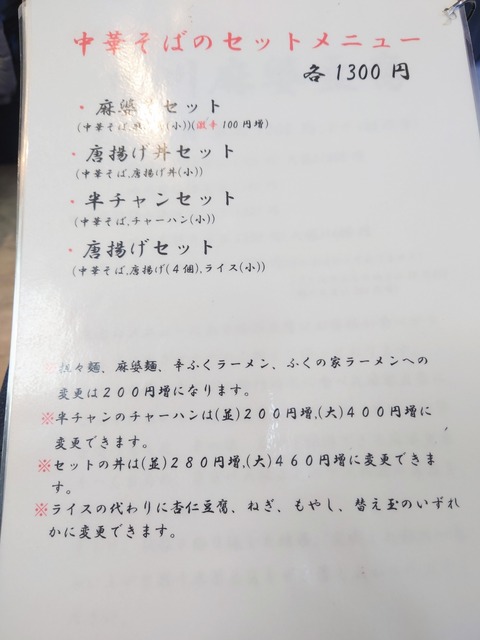 中華そばのセットメニュー
各1300円
・麻婆丼セット
(中華そば,麻婆丼(小))(激辛100円増)
・唐揚げ丼セット
(中華そば,唐揚げ丼(小))
・半チャンセット
(中華そば,チャーハン(小))
・唐揚げセット
(中華そば,唐揚げ(4個),ライス(小))
※担々麺、麻婆麺、辛ふくラーメン、ふくの家ラーメンへの
変更は200円増になります。
※半チャンのチャーハンは(並)200円増,(大)400円増に
変更できます。
※セットの丼は(並)280円増,(大)460円増に変更できま
す。
※ライスの代わりに杏仁豆腐、ねぎ、もやし、替え玉のいずれ
かに変更できます。